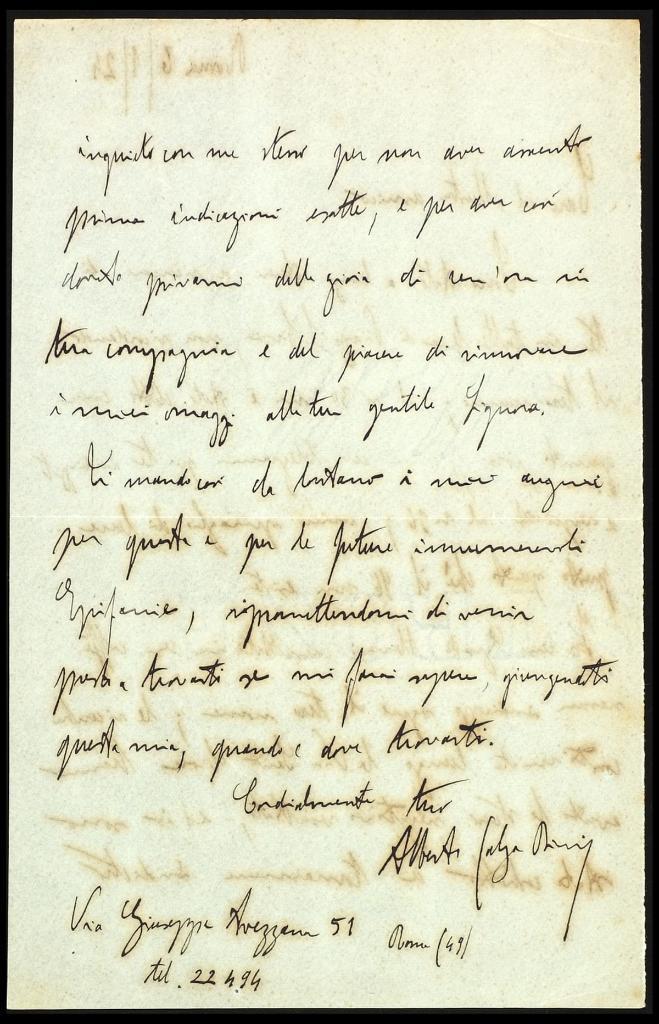 inquieto con me stesso per non aver assunto
prima indicazioni esatte, e per aver così
dovuto privarmi della gioia di un'ora in
tua compagnia e del piacere di rinnovare
i miei omaggi alla tua gentile Signora.
Ti mando così da lontano i miei auguri
per questa e per le future innumerevoli
Epifanie, ripromettendomi di venir
presto a trovarti se mi farai sapere, giungendoti
questa mia, quando e dove trovarti.
Cordialmente tuo
Alberto Calza Bini
Via Giuseppe Avezzana 51 Roma (49)
tel. 22494